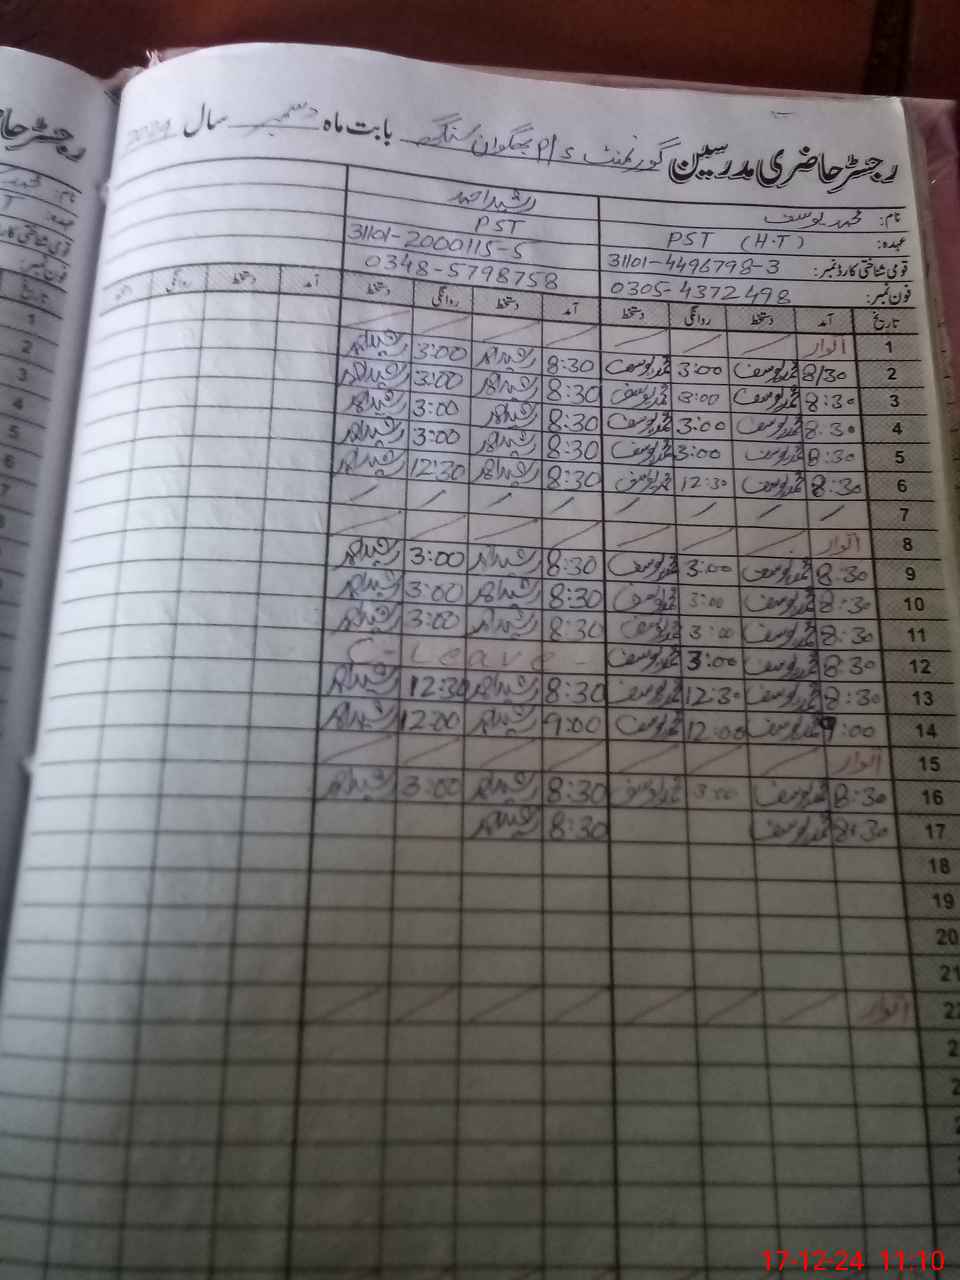 رجسٹر حاضری مدرسین گورنمنٹ P/S بھگوان سنگھ بابت ماہ دسمبر سال 2024
نام: محمد یوسف رشید احمد
عہدہ: PST (H.T) PST
قومی شناختی کارڈ نمبر: 31101-4496798-3 31101-2000115-5
فون نمبر: 0305-4372498 0348-5798758
تاریخ آمد دستخط روانگی دستخط آمد دستخط روانگی دستخط آمد دستخط روانگی دستخط
1 اتوار
2 8/30 محمد یوسف 3:00 محمد یوسف 8:30 رشید احمد 3:00 رشید احمد
3 8:30 محمد یوسف 3:00 محمد یوسف 8:30 رشید احمد 3:00 رشید احمد
4 8:30 محمد یوسف 3:00 محمد یوسف 8:30 رشید احمد 3:00 رشید احمد
5 8:30 محمد یوسف 3:00 محمد یوسف 8:30 رشید احمد 3:00 رشید احمد
6 8:30 محمد یوسف 12:30 محمد یوسف 8:30 رشید احمد 12:30 رشید احمد
7
8 اتوار
9 8:30 محمد یوسف 3:00 محمد یوسف 8:30 رشید احمد 3:00 رشید احمد
10 8:30 محمد یوسف 3:00 محمد یوسف 8:30 رشید احمد 3:00 رشید احمد
11 8:30 محمد یوسف 3:00 محمد یوسف 8:30 رشید احمد 3:00 رشید احمد
12 8:30 محمد یوسف 3:00 محمد یوسف C-Leave-
13 8:30 محمد یوسف 12:30 محمد یوسف 8:30 رشید احمد 12:30 رشید احمد
14 9:00 محمد یوسف 12:00 محمد یوسف 9:00 رشید احمد 12:00 رشید احمد
15 اتوار
16 8:30 محمد یوسف 3:00 محمد یوسف 8:30 رشید احمد 3:00 رشید احمد
17 8:30 محمد یوسف 8:30 رشید احمد
18
19
20
21
22 اتوار
17-12-24 11:10